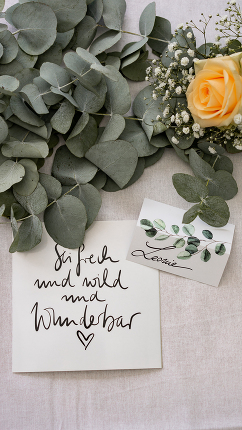 Sei frech
und wild
und
Wunderbar
Leonie